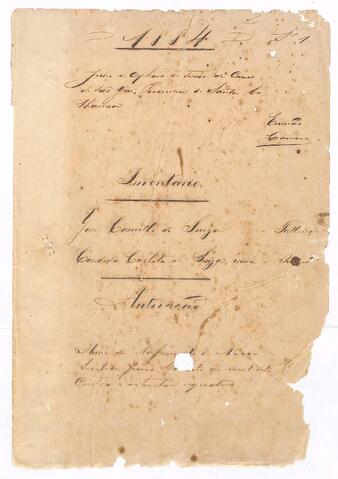 1884 N. 1
Juizo de Orphãos do termo da Cidade
de São José, Provincia de Santa Ca
tharina
Escrivão
Camara
Inventario
José Camillo de Souza - Fallecido
Candida Carlota de Souza, viuva -
Autuação
Anno do Nascimento de Nosso
Senhor Jesus Christo de mil oito
Centos e oitenta e quatro